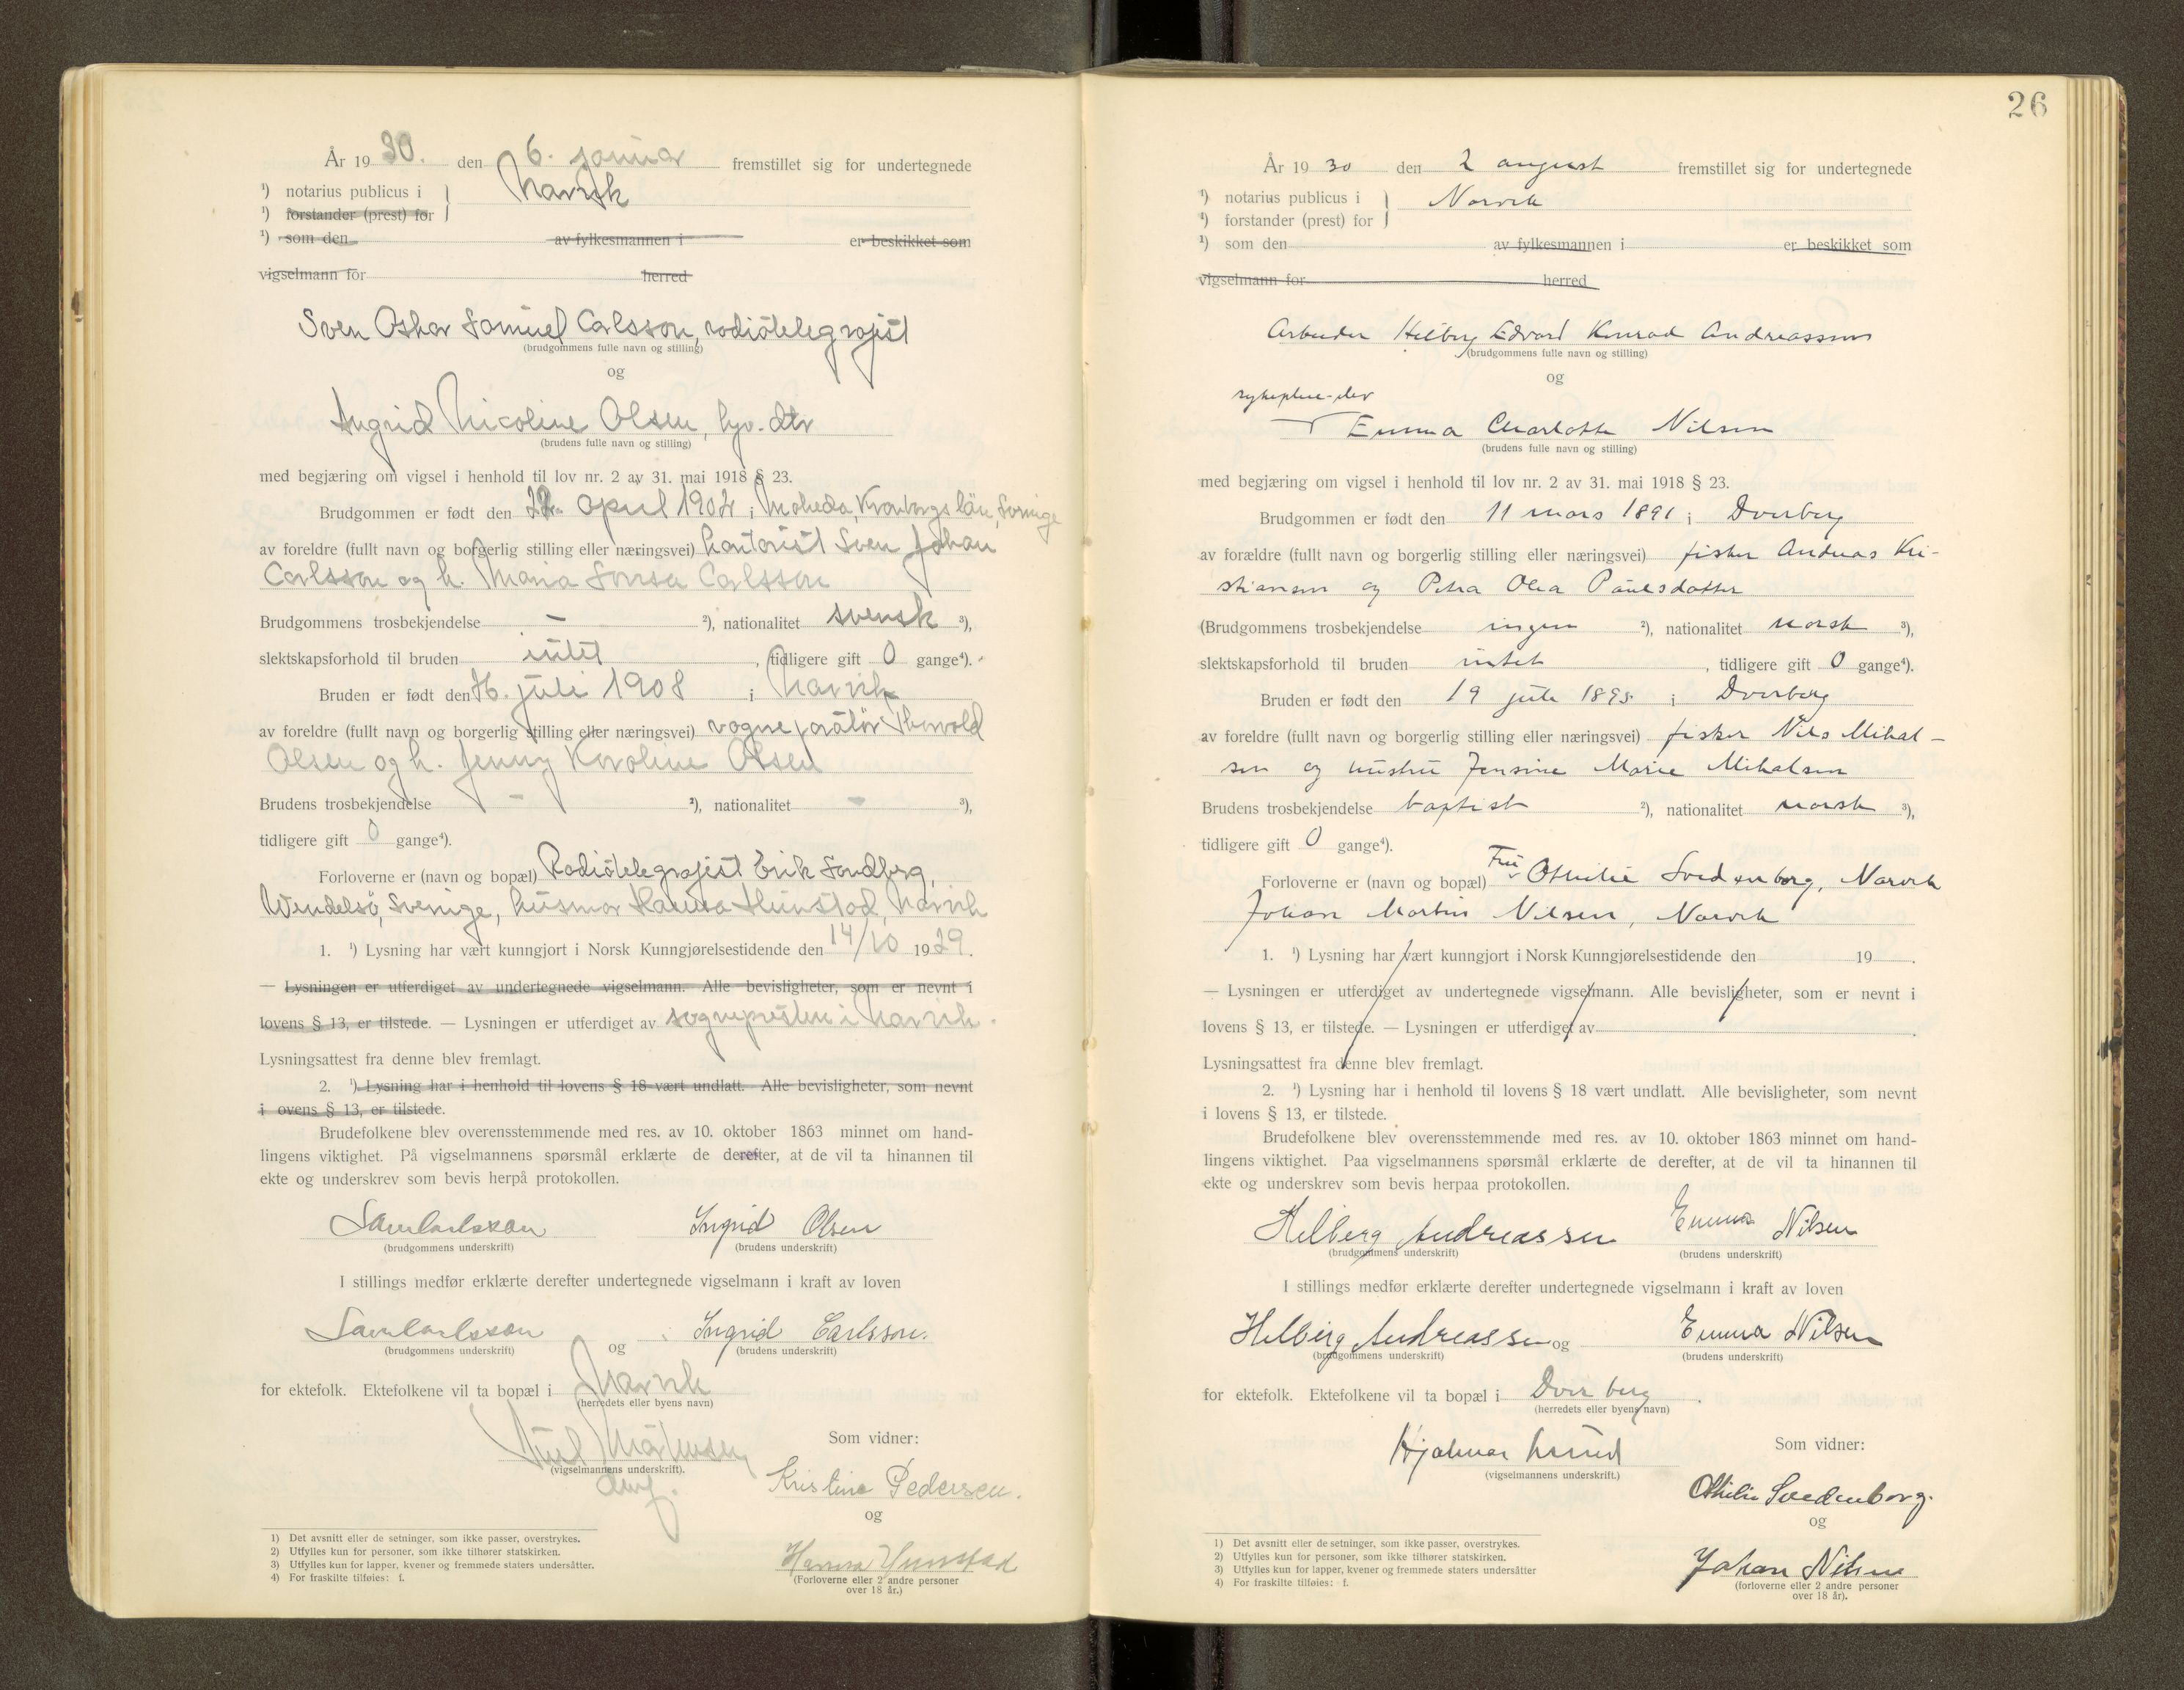 År 1930. den 6. januar fremstillet sig for undertegnede
¹) notarius publicus i } Narvik
¹) forstander (prest) for
¹) som den av fylkesmannen i er beskikket som
vigselmann for herred
Sven Oskar Samuel Carlsson, radiotelegrafist
(brudgommens fulle navn og stilling)
og
Ingrid Nicoline Olsen, hjv. dtr
(brudens fulle navn og stilling)
med begjæring om vigsel i henhold til lov nr. 2 av 31. mai 1918 § 23.
Brudgommen er født den april 1904 i Moheda, Kronbergs län, Sverige
av foreldre (fullt navn og borgerlig stilling eller næringsvei) kontorist Sven Johan
Carlsson og h. Maria Carlsson
Brudgommens trosbekjendelse — ²), nationalitet svensk ³),
slektskapsforhold til bruden intet, tidligere gift 0 gange⁴).
Bruden er født den 16. juli 1908 i Narvik
av foreldre (fullt navn og borgerlig stilling eller næringsvei) Thorvald
Olsen og h. Jenny Karoline Olsen
Brudens trosbekjendelse — ²), nationalitet — ³),
tidligere gift 0 gange⁴).
Forloverne er (navn og bopæl) Radiotelegrafist Erik Sandberg,
Wendelsö, Sverige, husmor Hanna Hunstad, Narvik
1. ¹) Lysning har vært kunngjort i Norsk Kunngjørelsestidende den 14/10 1929.
— Lysningen er utferdiget av undertegnede vigselmann. Alle bevisligheter, som er nevnt i
lovens § 13, er tilstede. — Lysningen er utferdiget av sognepresten i Narvik.
Lysningsattest fra denne blev fremlagt.
2. ¹) Lysning har i henhold til lovens § 18 vært undlatt. Alle bevisligheter, som nevnt
i ovens § 13, er tilstede.
Brudefolkene blev overensstemmende med res. av 10. oktober 1863 minnet om hand-
lingens viktighet. På vigselmannens spørsmål erklærte de derefter, at de vil ta hinannen til
ekte og underskrev som bevis herpå protokollen.
Sam Carlsson Ingrid Olsen
(brudgommens underskrift) (brudens underskrift)
I stillings medfør erklærte derefter undertegnede vigselmann i kraft av loven
Sam Carlsson og Ingrid Carlsson.
(brudgommens underskrift) (brudens underskrift)
for ektefolk. Ektefolkene vil ta bopæl i Narvik
(herredets eller byens navn)
(vigselmannens underskrift).
Som vidner:
Kristine Pedersen.
og
Hanna Hunstad
(Forloverne eller 2 andre personer
over 18 år.)
1) Det avsnitt eller de setninger, som ikke passer, overstrykes.
2) Utfylles kun for personer, som ikke tilhører statskirken.
3) Utfylles kun for lapper, kvener og fremmede staters undersåtter.
4) For fraskilte tilføies: f.
26
År 1930 den 2 august fremstillet sig for undertegnede
¹) notarius publicus i } Narvik
¹) forstander (prest) for
¹) som den av fylkesmannen i er beskikket som
vigselmann for herred
Arbeider Hilberg Edvard Konrad Andreassen
(brudgommens fulle navn og stilling)
og
sykepleie-elev
Emma Charlotte Nilsen
(brudens fulle navn og stilling)
med begjæring om vigsel i henhold til lov nr. 2 av 31. mai 1918 § 23.
Brudgommen er født den 11 mars 1891 i Dverberg
av forældre (fullt navn og borgerlig stilling eller næringsvei) fisker Andreas Kri-
stiansen og Petra Olea Paulsdatter
(Brudgommens trosbekjendelse ingen ²), nationalitet norsk ³),
slektskapsforhold til bruden intet, tidligere gift 0 gange⁴).
Bruden er født den 19 juli 1895 i Dverberg
av foreldre (fullt navn og borgerlig stilling eller næringsvei) fisker Nils Mikal-
sen og hustru Jensine Marie Mikalsen
Brudens trosbekjendelse baptist ²), nationalitet norsk ³),
tidligere gift 0 gange⁴).
Forloverne er (navn og bopæl) Fru Othilie Svedenborg, Narvik
Johan Martin Nilsen, Narvik
1. ¹) Lysning har vært kunngjort i Norsk Kunngjørelsestidende den 19 .
— Lysningen er utferdiget av undertegnede vigselmann. Alle bevisligheter, som er nevnt i
lovens § 13, er tilstede. — Lysningen er utferdiget av .
Lysningsattest fra denne blev fremlagt.
2. ¹) Lysning har i henhold til lovens § 18 vært undlatt. Alle bevisligheter, som nevnt
i lovens § 13, er tilstede.
Brudefolkene blev overensstemmende med res. av 10. oktober 1863 minnet om hand-
lingens viktighet. Paa vigselmannens spørsmål erklærte de derefter, at de vil ta hinannen til
ekte og underskrev som bevis herpaa protokollen.
Hilberg Andreassen Emma Nilsen
(brudgommens underskrift) (brudens underskrift)
I stillings medfør erklærte derefter undertegnede vigselmann i kraft av loven
Hilberg Andreassen og Emma Nilsen
(brudgommens underskrift) (brudens underskrift)
for ektefolk. Ektefolkene vil ta bopæl i Dverberg .
(herredets eller byens navn)
Hjalmar Lund
(vigselmannens underskrift.)
Som vidner:
Othilie Svedenborg.
og
Johan Nilsen
(forloverne eller 2 andre personer
over 18 år).
1) Det avsnitt eller de setninger, som ikke passer, overstrykes.
2) Utfylles kun for personer, som ikke tilhører statskirken.
3) Utfylles kun for lapper, kvener og fremmede staters undersåtter
4) For fraskilte tilføies: f.